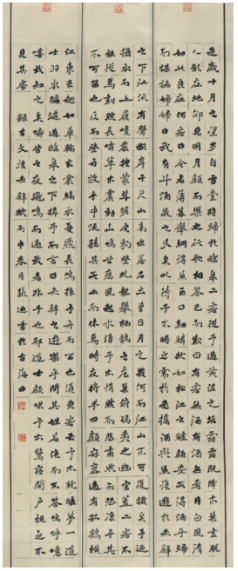 是歲十月之望步自雪堂將歸於臨皋二客從予過黃泥之坂霜露既降木葉盡脫
人影在地仰見明月顧而樂之行歌相答已而歎曰有客無酒有酒無肴月白風清
如此良夜何客曰今者薄暮舉網得魚巨口細鱗狀如松江之鱸顧安所得酒乎歸
而謀諸婦婦曰我有斗酒藏之久矣以待子不時之需於是攜酒與魚復遊於赤壁
之下江流有聲斷岸千尺山高水落石出曾日月之幾何而江山不可復識矣予乃
攝衣而上履巉巖披蒙茸踞虎豹登虬龍攀棲鶻之危巢俯馮夷之幽宮蓋二客不
能從焉劃然長嘯草木震動山鳴谷應風起水涌予亦悄然而悲肅然而恐凜乎其
不可留也反而登舟放乎中流聽其所止而休焉時夜將半四顧寂寥適有孤鶴橫
江東來翅如車輪玄裳縞衣戛然長鳴掠予舟而西也須臾客去予亦就睡夢道
士羽衣蹁躚過臨皋之下揖予而言曰赤壁之遊樂乎問其姓名俛而不答嗚呼噫
嘻我知之矣疇昔之夜飛鳴而過我者非子也邪道士顧笑予亦驚寤開戶視之不
見其處 錄古文後赤壁賦 春月張迪書於古海